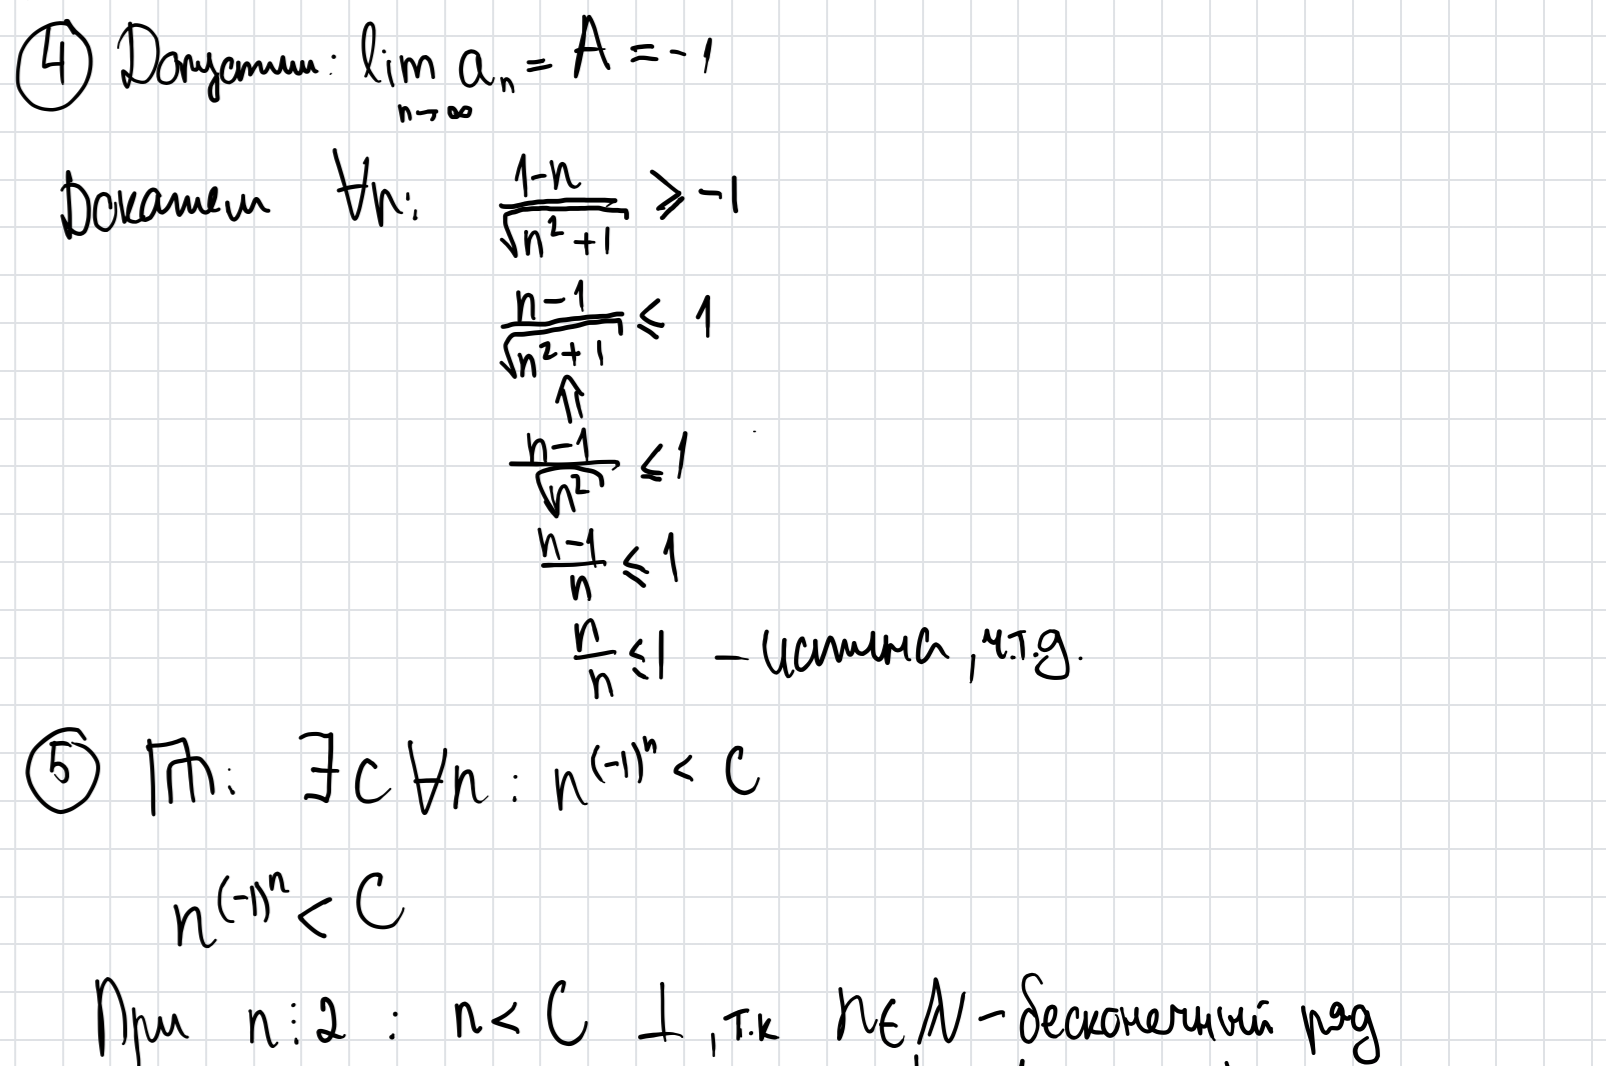 ④ Допустим: lim a_n = A = -1
n→∞
Докажем ∀n: (1-n)/√(n²+1) ≥ -1
(n-1)/√(n²+1) ≤ 1
⇑
(n-1)/√(n²) ≤ 1
(n-1)/n ≤ 1
n/n ≤ 1 - истина, ч.т.д.
⑤ ∃C ∀n: n^(-1)^n < C
n^(-1)^n < C
При n⋮2 : n < C ⊥, т.к n∈N - бесконечный ряд